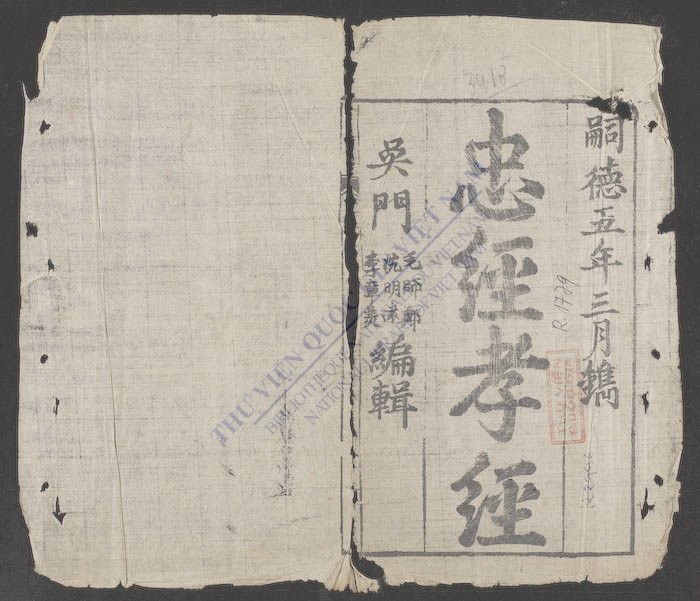 3418
嗣德五年三月鐫
R.1729
忠經孝經
吳門
毛師鄭
沈明
李章
編輯
THƯ VIỆN QUỐC GIA VIỆT NAM
BIBLIOTHÈQUE NATIONALE DU VIETNAM
NATIONAL LIBRARY OF VIETNAM